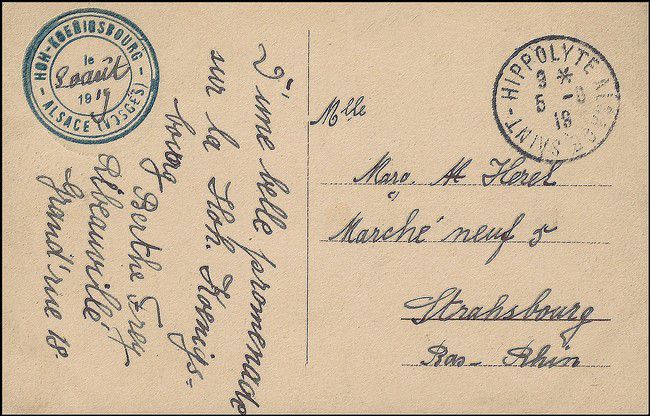 HOH-KOENIGSBOURG
le
2 août
1919
ALSACE (VOSGES)
D'une belle promenade
sur la Hoh. Koenigs=
bourg
Berthe Frey
Ribeauvillé
Grand'rue 18.
SAINT-HIPPOLYTE ALSACE
3 *
5 - 8
19
Mlle
Marg.
Marché neuf 5
Strahsbourg
Bas-Rhin